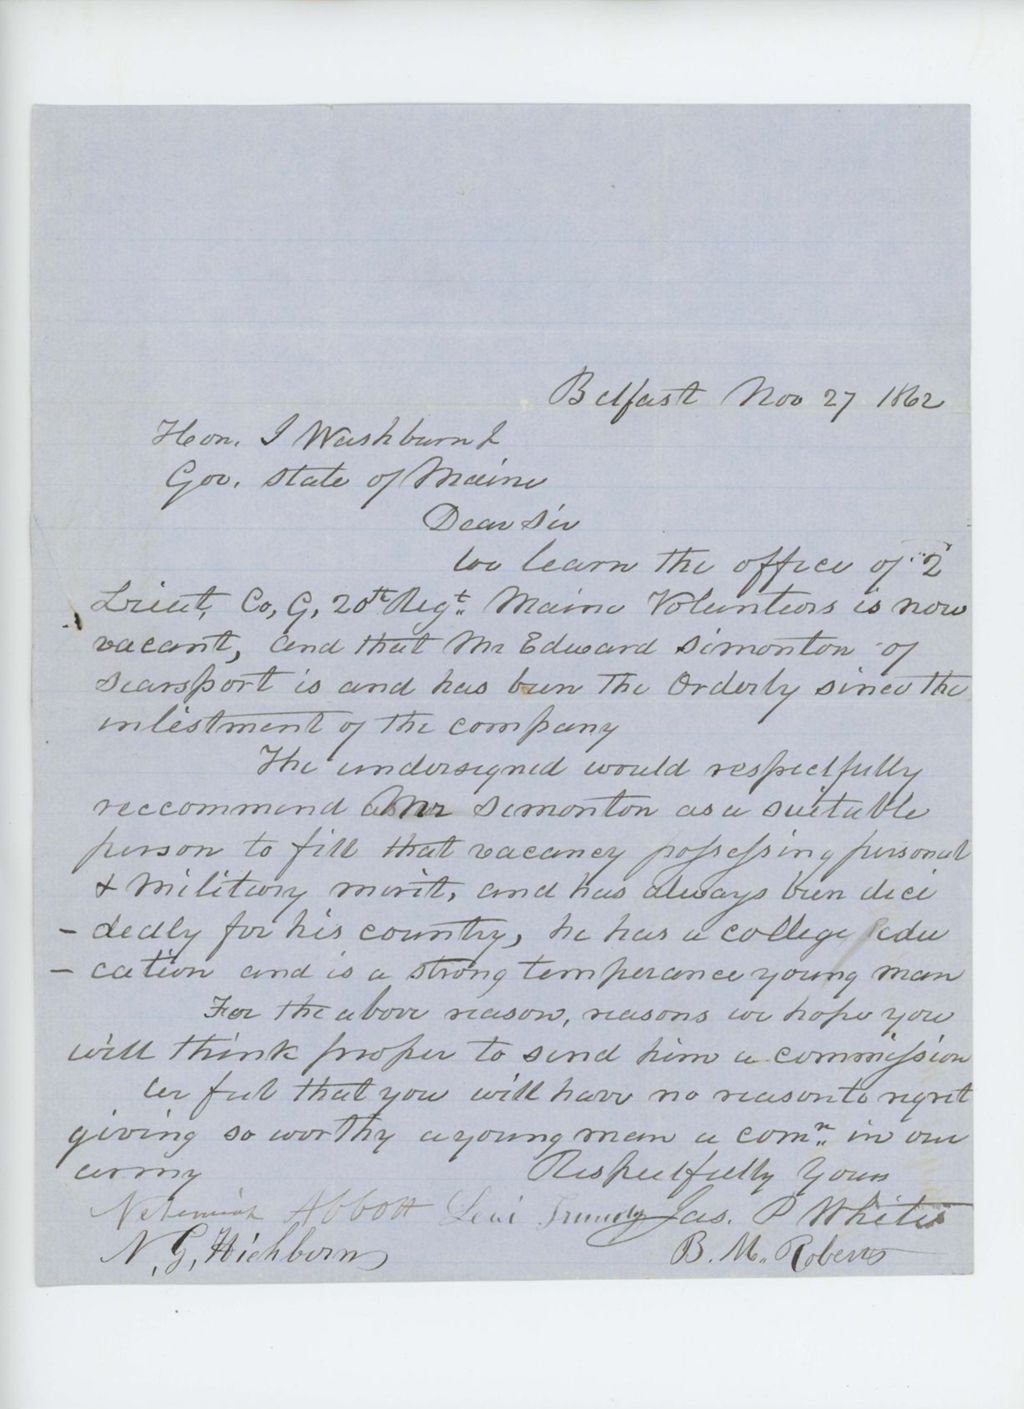 Belfast Nov 27 1862
Hon. I Washburn Jr
Gov. State of Maine
Dear Sir
We learn the office of 2
Lieut, Co, G, 20th Regt. Maine Volunteers is now
vacant, and that Mr Edward Simonton of
Searsport is and has been the Orderly since the
inlestment of the company
The undersigned would respectfully
reccommend Mr Simonton as a suitable
person to fill that vacancy possessing personal
& Military merit, and has always been deci
- dedly for his country, he has a college edu
- cation and is a strong temperance young man
For the above reason, reasons we hope you
will think proper to send him a commission
We feel that you will have no reason to regret
giving so worthy a young man a comn. in our
army Respectfully Yours
Nehemiah Abbott Levi Jas. P White
N. G. Hichborn B. M. Roberts